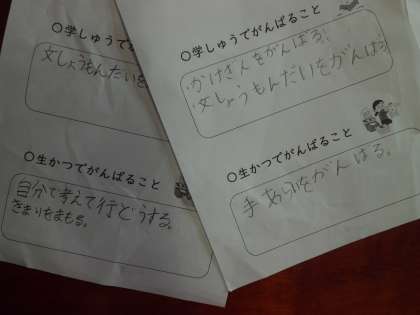 ○学しゅうでが
文しょうもんだいを
○生かつでがんばること
自分で考えて行どうする。
きまりをまもる。
○学しゅうでがんばること
・かけざんをがんばる!
・文しょうもんだいをがんばる
○生かつでがんばること
手あらいをがんばる。